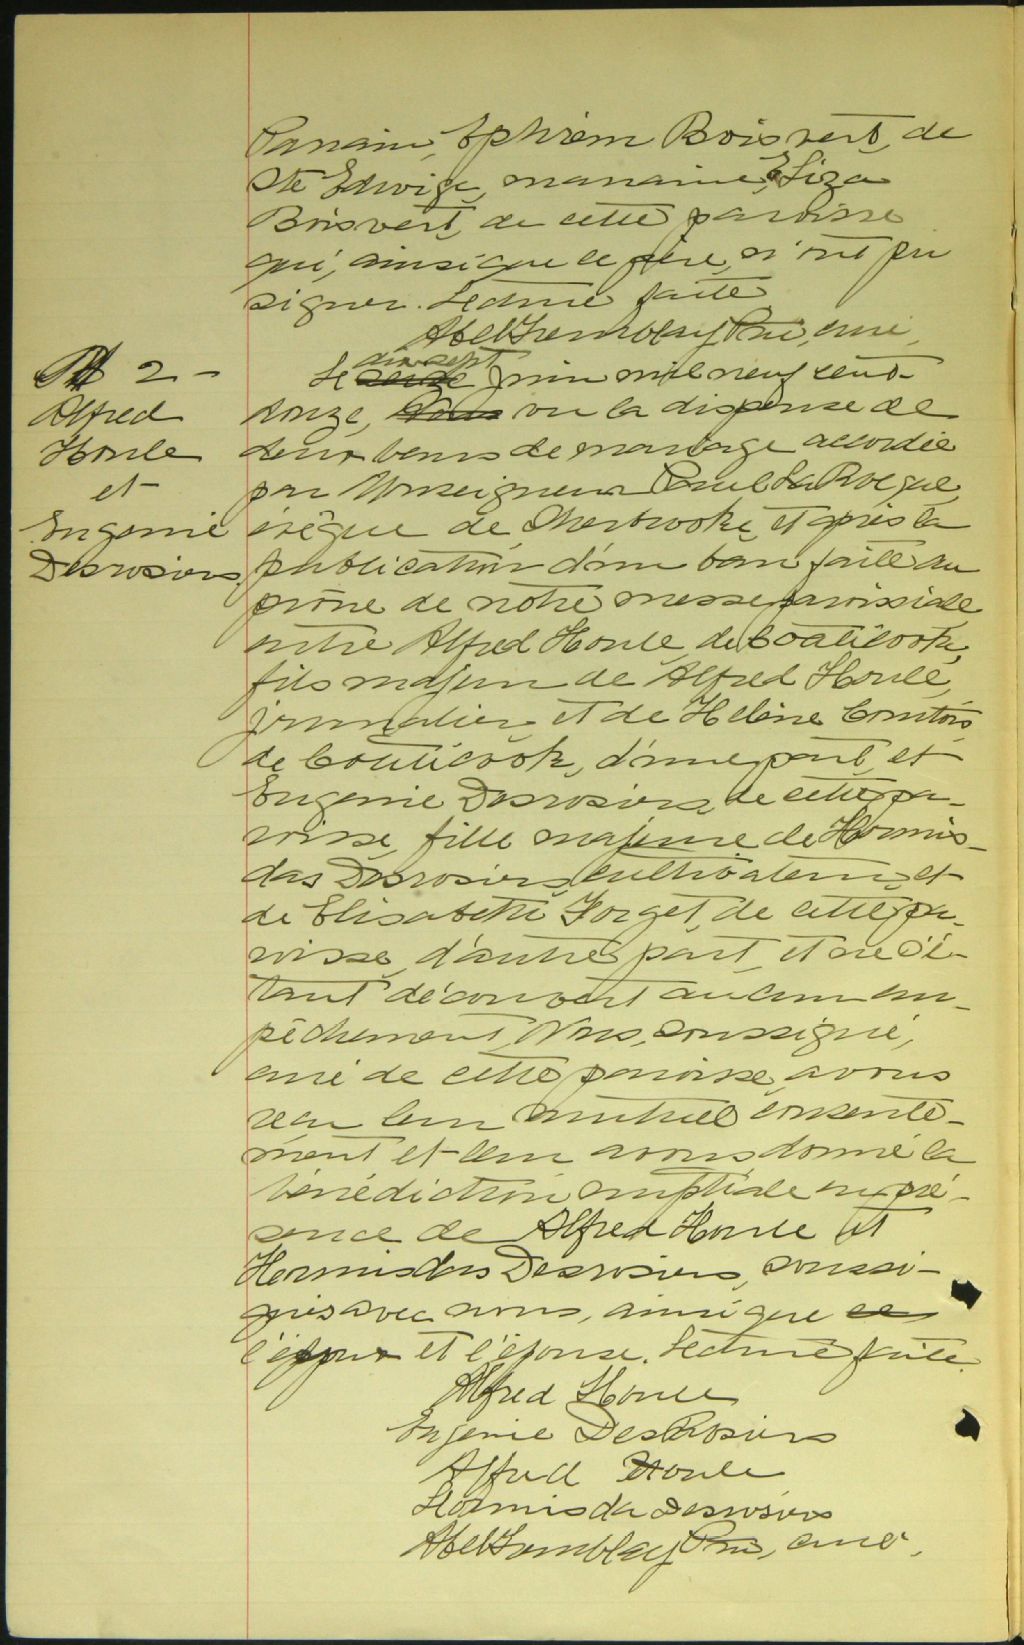 Parrain, Ephrem Boisvert, de
Ste Edwige, marraine, Eliza
Boisvert, de cette paroisse
qui, ainsi que le père, n'ont pu
signer. Lecture faite
Abel Tremblay Ptre, curé,
M 2 -
Alfred
Houle
et
Eugenie
Desrosiers
dix-sept
Le seize juin mil neuf cent
onze, vu la dispense de
deux bans de mariage accordée
par Monseigneur Paul LaRocque,
évêque de Sherbrooke, et après la
publication d'un ban faite au
prône de notre messe paroissiale
entre Alfred Houle, de Coaticook,
fils majeur de Alfred Houle,
journalier, et de Helène Comtois,
de Coaticook, d'une part, et
Eugenie Desrosiers, de cette pa-
roisse, fille majeure de Hormis-
das Desrosiers, cultivateur, et
de Elisabeth Forget, de cette pa-
roisse, d'autre part, et ne s'é-
tant découvert aucun em-
pêchement, Nous, soussigné,
curé de cette paroisse, avons
reçu leur mutuel consente-
ment et leur avons donné la
bénédiction nuptiale en pré-
sence de Alfred Houle et
Hormisdas Desrosiers, soussi-
gnés avec nous, ainsi que
l'époux et l'épouse. Lecture faite.
Alfred Houle
Eugenie DesRosiers
Alfred Houle
Hormisda Desrosiers
Abel Tremblay Ptre, curé,